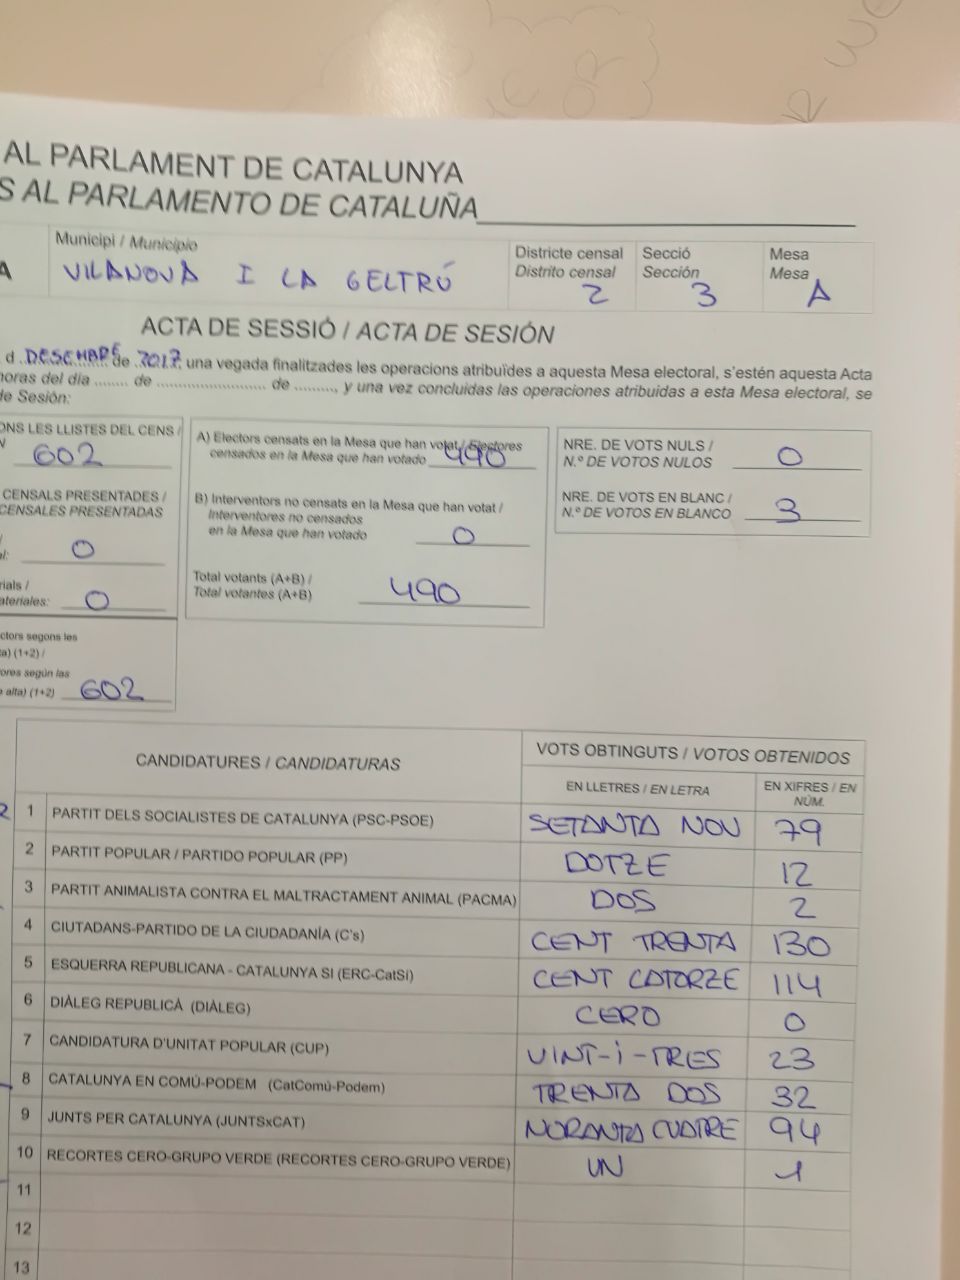 AL PARLAMENT DE CATALUNYA
S AL PARLAMENTO DE CATALUÑA
A
Municipi / Municipio
VILANOVA I LA GELTRÚ
Districte censal
Distrito censal
2
Secció
Sección
3
Mesa
Mesa
A
ACTA DE SESSIÓ / ACTA DE SESIÓN
d DESEMBRE de 2017, una vegada finalitzades les operacions atribuïdes a aquesta Mesa electoral, s'estén aquesta Acta
horas del día ........ de ......................... de .........., y una vez concluidas las operaciones atribuidas a esta Mesa electoral, se
de Sesión:
ONS LES LLISTES DEL CENS /
N 602
CENSALS PRESENTADES /
CENSALES PRESENTADAS
/
al: 0
rials /
ateriales: 0
ctors segons les
ta) (1+2) /
ores según las
e alta) (1+2) 602
A) Electors censats en la Mesa que han votat / Electores
censados en la Mesa que han votado 490
B) Interventors no censats en la Mesa que han votat /
Interventores no censados
en la Mesa que han votado 0
Total votants (A+B) /
Total votantes (A+B) 490
NRE. DE VOTS NULS /
N.º DE VOTOS NULOS 0
NRE. DE VOTS EN BLANC /
N.º DE VOTOS EN BLANCO 3
CANDIDATURES / CANDIDATURAS
VOTS OBTINGUTS / VOTOS OBTENIDOS
EN LLETRES / EN LETRA
EN XIFRES / EN
NÚM.
1 PARTIT DELS SOCIALISTES DE CATALUNYA (PSC-PSOE) SETANTA NOU 79
2 PARTIT POPULAR / PARTIDO POPULAR (PP) DOTZE 12
3 PARTIT ANIMALISTA CONTRA EL MALTRACTAMENT ANIMAL (PACMA) DOS 2
4 CIUTADANS-PARTIDO DE LA CIUDADANÍA (C's) CENT TRENTA 130
5 ESQUERRA REPUBLICANA - CATALUNYA SI (ERC-CatSI) CENT CATORZE 114
6 DIÀLEG REPUBLICÀ (DIÀLEG) CERO 0
7 CANDIDATURA D'UNITAT POPULAR (CUP) VINT-I-TRES 23
8 CATALUNYA EN COMÚ-PODEM (CatComú-Podem) TRENTA DOS 32
9 JUNTS PER CATALUNYA (JUNTSxCAT) NORANTA CUATRE 94
10 RECORTES CERO-GRUPO VERDE (RECORTES CERO-GRUPO VERDE) UN 1
11
12
13